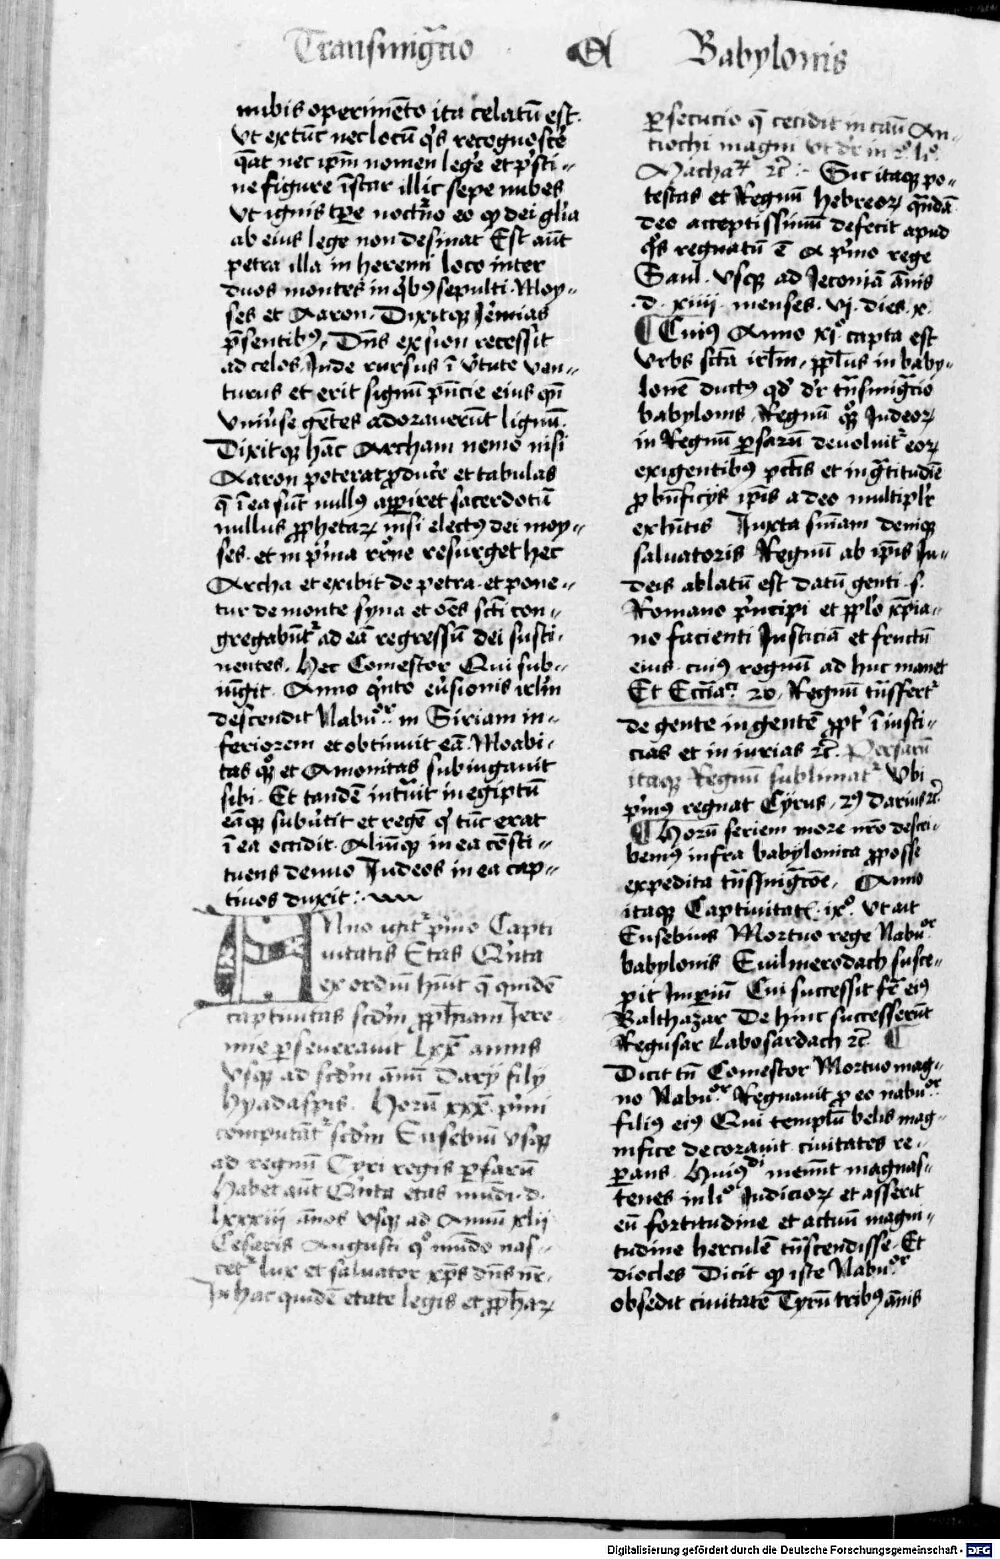 Transmig̅cio Et Babylonis
nubis operime̅to ita celatu̅ est.
Vt ex tu̅c nec locu̅ q's recognosce̅
q̅at nec ip̅m nomen lege̅ et p'sti-
ne figure i̅star illic sepe nubes
Vt ignis t̅pe noct'no eo qꝫ dei gl̅ia
ab eius lege non desinat Est au̅t
petra illa in heremi loco inter
duos montes in q'bꝰ sepulti Moy-
ses et Aaron. Dixitqꝫ Je̅mias
p̅sentibꝰ, Dn̅s ex sion recessit
ad celos. Inde rursus i̅ v̅tute ven-
turus et erit signu̅ p̅n̅cie eius qn̅
vniu̅se ge̅tes adorauerint lignu̅.
Dixitqꝫ ha̅c Archam nemo nisi
Aaron poterat ꝓduce̅ et tabulas
q̅ i̅ ea su̅t nullꝰ app̅iret sacerdotu̅
nullus ꝓphetaꝝ nisi electꝰ dei moy-
ses. et in p'ma r̅r̅one resurget hec
Archa et exibit de petra et pone-
tur de monte syna et o̅es sc̅ti con-
gregabu̅tr ad ea̅ regressu̅ dei susti-
nentes. Hec Comestor Qui sub-
iu̅git. Anno q'nto eu̅sionis irl̅m
descendit Nabuor in Siriam in-
feriorem et obtinuit ea̅. Moabi-
tas qꝫ et Amonitas subiugauit
sibi. Et tande̅ int̅uit in egiptu̅
ea̅qꝫ subu̅tit et rege̅ q' tu̅c erat
i̅ ea occidit. Aliu̅qꝫ in ea co̅sti-
tuens denuo Judeos in ea cap-
tiuos duxit:
Anno igit̅ p'mo Capti
uitatis Etas Q'nta
exordiu̅ hu̅it q̅ quide̅
captiuitas scd̅m ꝓph̅iam Jere-
mie p̅seuerauit Lxx annis
Vsqꝫ ad scd̅m annu̅ Darij filij
hyadaspis. Horu̅ xxx p'mi
computa̅tr scd̅m Eusebiu̅ vsqꝫ
ad regnu̅ Cyri regis p̅saru̅
Habet au̅t Q'nta etas mu̅di. d.
Lxxxiij a̅nos vsqꝫ ad Annu̅ xlij
Cesaris Augusti qo mu̅do nas-
cetr lux et saluator xp̅s dn̅s nr̅.
In hac quide̅ etate legis et ꝓph̅aꝝ
p̅secucio q̅ cecidit in cau̅ An-
tiochi magni vt d'r in 2o lio
Machaꝝ ꝛc̅:- Sic itaqꝫ po-
testas et Regnu̅ hebreoꝝ qu̅da̅
deo acceptissimu̅ defecit apud
q's regnatu̅ e̅ A p'mo rege
Saul. vsqꝫ ad Jeconia̅ a̅nis
.d. xiiij menses. vj. dies. x.
¶ Cuiꝰ Anno xjo capta est
Vrbs sc̅ta irl̅m, pp̅lus in baby-
lone̅ ductꝰ qd̅ d'r tn̅smig̅cio
babylonis, Regnu̅ qꝫ Judeoꝝ
in Regnu̅ p̅saru̅ deuoluitr eoꝝ
exigentibꝰ pc̅tis et ing̅titudi̅e
ꝓ bn̅ficijs ip̅is a deo multipl'r
exhi̅tis Iuxta sn̅iam deniqꝫ
saluatoris Regnu̅ ab ip̅is Ju-
deis ablatu̅ est datu̅ genti .s.
Romano p'ncipi et pp̅lo xp̅ia-
no facienti Justicia̅ et fructu̅
eius cuiꝰ regnu̅ ad huc manet
Et Eccl̅iaci 20, Regnu̅ tn̅sfertr
de gente in gente̅ ꝓpt' i̅iusti-
cias et iniurias ꝛc̅. Persaru̅
itaqꝫ Regnu̅ sublimatr Vbi
p'mꝰ regnat Cyrus, 2ꝰ dariꝰ ꝛc̅.
¶ Horu̅ seriem more nr̅o descri-
bemꝰ infra babylonica ꝓposse
expedita tn̅smig̅cōe, Anno
itaqꝫ Captiuitat̅. ixo. vt ait
Eusebius Mortuo rege Nabuor
babylonis Euilmerodach susce-
pit Imp̅iu̅ Cui successit fr̅ eiꝰ
Balthazar De hinc successeru̅t
Regusar Labosardach ꝛc̅ ¶
Dicit tn̅ Comestor Mortuo mag-
no Nabuor Regnauit ꝓ eo nabuor
filiꝰ eiꝰ Qui templu̅ belis mag-
nifice decorauit ciuitates re-
p̅ans. Huiꝰdi memi̅t magnas-
tenes in lio Judicioꝝ et asserit
eu̅ fortitudine et actuu̅ magni-
tudine hercule̅ tn̅scendisse. Et
diocles Dicit qꝫ iste Nabuor
obsedit ciuitate̅ Tyru̅ tribꝰ a̅nis
Digitalisierung gefördert durch die Deutsche Forschungsgemeinschaft - DFG